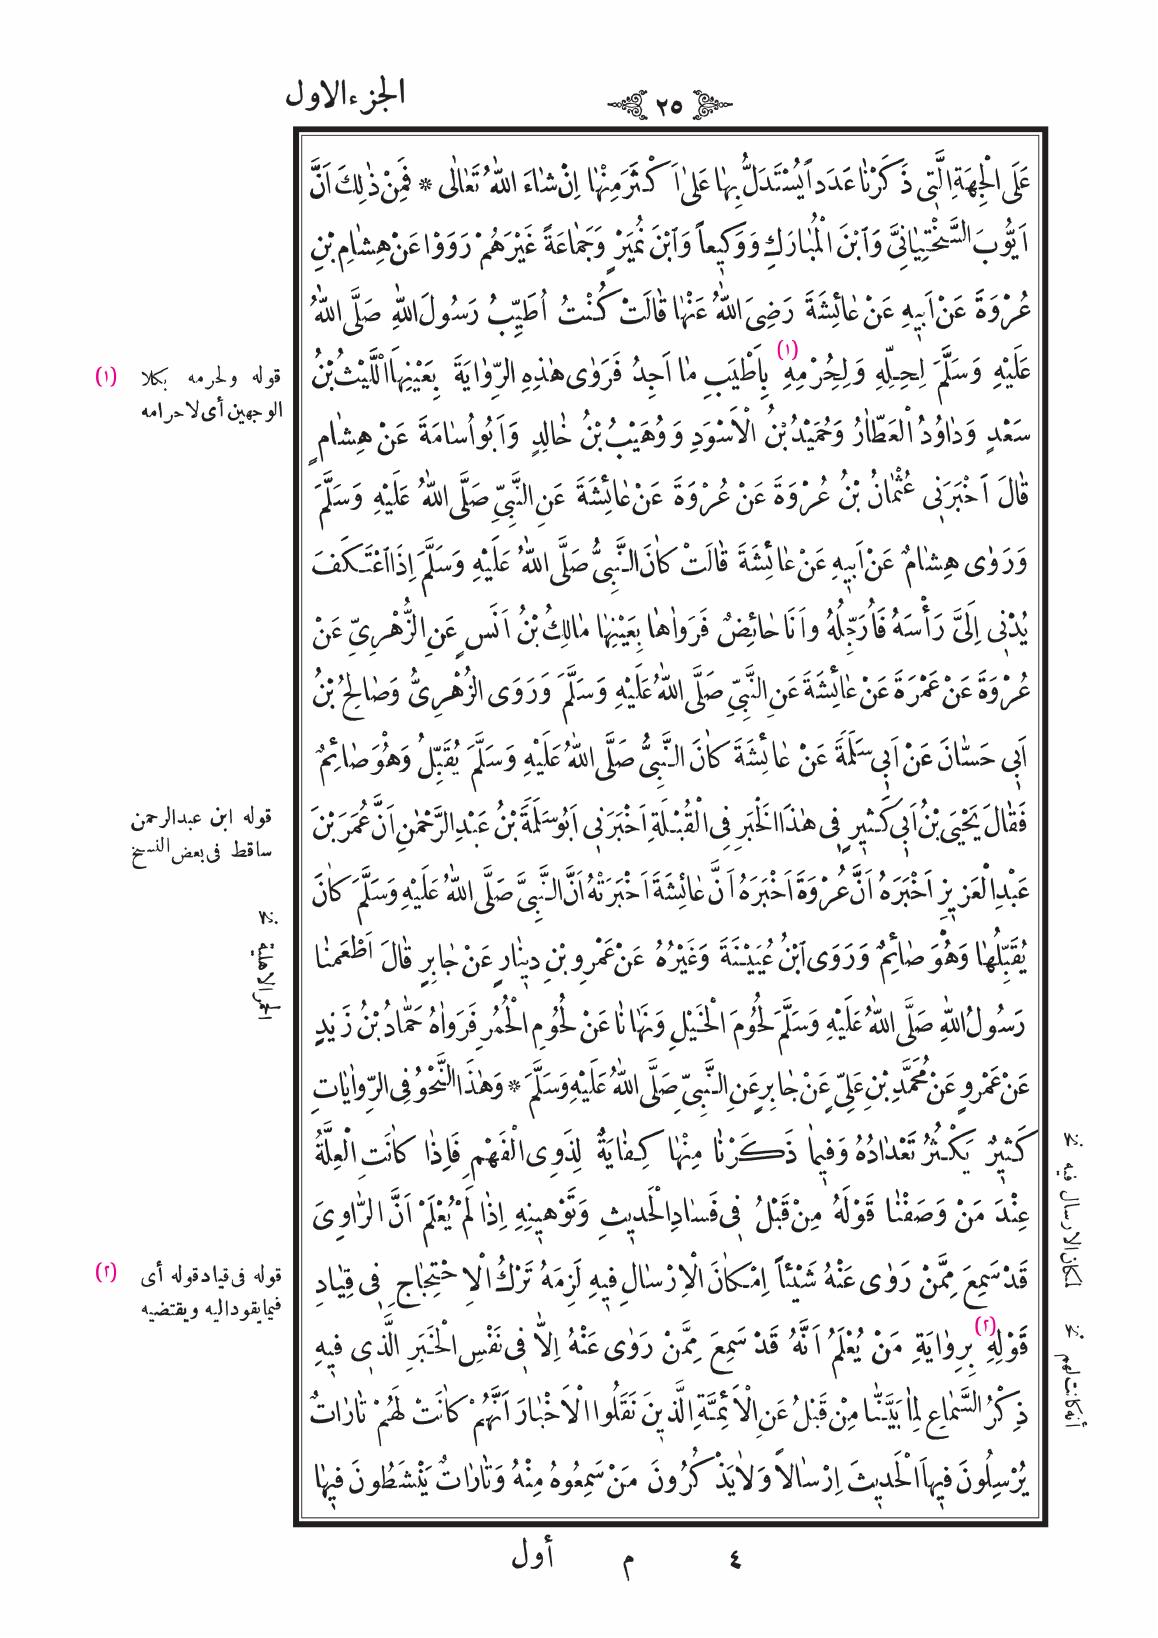 الجزء الاول
٢٥
عَلَى الْجِهَةِ الَّتِى ذَكَرْنَا عَدَدًا يُسْتَدَلُّ بِهَا عَلَى اَكْثَرَ مِنْهَا اِنْ شَاءَ اللّٰهُ تَعَالٰى * فَمِنْ ذٰلِكَ اَنَّ
اَيُّوبَ السَّخْتِيَانِىَّ وَابْنَ الْمُبَارَكِ وَوَكِيعاً وَابْنَ نُمَيْرٍ وَجَمَاعَةً غَيْرَهُمْ رَوَوْا عَنْ هِشَامِ بْنِ
عُرْوَةَ عَنْ اَبِيهِ عَنْ عَائِشَةَ رَضِىَ اللّٰهُ عَنْهَا قَالَتْ كُنْتُ اُطَيِّبُ رَسُولَ اللّٰهِ صَلَّى اللّٰهُ
عَلَيْهِ وَسَلَّمَ لِحِلِّهِ وَلِحُرْمِهِ (١) بِأَطْيَبِ مَا اَجِدُ فَرَوٰى هٰذِهِ الرِّوَايَةَ بِعَيْنِهَا اللَّيْثُ بْنُ
سَعْدٍ وَدَاوُدُ الْعَطَّارُ وَحُمَيْدُ بْنُ الْاَسْوَدِ وَوُهَيْبُ بْنُ خَالِدٍ وَاَبُو اُسَامَةَ عَنْ هِشَامٍ
قَالَ اَخْبَرَنِى عُثْمَانُ بْنُ عُرْوَةَ عَنْ عُرْوَةَ عَنْ عَائِشَةَ عَنِ النَّبِىِّ صَلَّى اللّٰهُ عَلَيْهِ وَسَلَّمَ
وَرَوٰى هِشَامٌ عَنْ اَبِيهِ عَنْ عَائِشَةَ قَالَتْ كَانَ النَّبِىُّ صَلَّى اللّٰهُ عَلَيْهِ وَسَلَّمَ اِذَا اعْتَكَفَ
يُدْنِى اِلَىَّ رَأْسَهُ فَاُرَجِّلُهُ وَاَنَا حَائِضٌ فَرَوَاهَا بِعَيْنِهَا مَالِكُ بْنُ اَنَسٍ عَنِ الزُّهْرِىِّ عَنْ
عُرْوَةَ عَنْ عَمْرَةَ عَنْ عَائِشَةَ عَنِ النَّبِىِّ صَلَّى اللّٰهُ عَلَيْهِ وَسَلَّمَ وَرَوَى الزُّهْرِىُّ وَصَالِحُ بْنُ
اَبِى حَسَّانَ عَنْ اَبِى سَلَمَةَ عَنْ عَائِشَةَ كَانَ النَّبِىُّ صَلَّى اللّٰهُ عَلَيْهِ وَسَلَّمَ يُقَبِّلُ وَهُوَ صَائِمٌ
فَقَالَ يَحْيَى بْنُ اَبِى كَثِيرٍ فِى هٰذَا الْخَبَرِ فِى الْقُبْلَةِ اَخْبَرَنِى اَبُو سَلَمَةَ بْنُ عَبْدِ الرَّحْمٰنِ اَنَّ عُمَرَ بْنَ
عَبْدِ الْعَزِيزِ اَخْبَرَهُ اَنَّ عُرْوَةَ اَخْبَرَهُ اَنَّ عَائِشَةَ اَخْبَرَتْهُ اَنَّ النَّبِىَّ صَلَّى اللّٰهُ عَلَيْهِ وَسَلَّمَ كَانَ
يُقَبِّلُهَا وَهُوَ صَائِمٌ وَرَوَى ابْنُ عُيَيْنَةَ وَغَيْرُهُ عَنْ عَمْرِو بْنِ دِينَارٍ عَنْ جَابِرٍ قَالَ اَطْعَمَنَا
رَسُولُ اللّٰهِ صَلَّى اللّٰهُ عَلَيْهِ وَسَلَّمَ لُحُومَ الْخَيْلِ وَنَهَانَا عَنْ لُحُومِ الْحُمُرِ فَرَوَاهُ حَمَّادُ بْنُ زَيْدٍ
عَنْ عَمْرٍو عَنْ مُحَمَّدِ بْنِ عَلِىٍّ عَنْ جَابِرٍ عَنِ النَّبِىِّ صَلَّى اللّٰهُ عَلَيْهِ وَسَلَّمَ * وَهٰذَا النَّحْوُ فِى الرِّوَايَاتِ
كَثِيرٌ يَكْثُرُ تَعْدَادُهُ وَفِيمَا ذَكَرْنَا مِنْهَا كِفَايَةٌ لِذَوِى الْفَهْمِ فَاِذَا كَانَتِ الْعِلَّةُ
عِنْدَ مَنْ وَصَفْنَا قَوْلَهُ مِنْ قَبْلُ فِى فَسَادِ الْحَدِيثِ وَتَوْهِينِهِ اِذَا لَمْ يُعْلَمْ اَنَّ الرَّاوِىَ
قَدْ سَمِعَ مِمَّنْ رَوٰى عَنْهُ شَيْئاً اِمْكَانَ الْاِرْسَالِ فِيهِ لَزِمَهُ تَرْكُ الْاِحْتِجَاجِ فِى قِيَادِ
قَوْلِهِ (٢) بِرِوَايَةِ مَنْ يُعْلَمُ اَنَّهُ قَدْ سَمِعَ مِمَّنْ رَوٰى عَنْهُ اِلَّا فِى نَفْسِ الْخَبَرِ الَّذِى فِيهِ
ذِكْرُ السَّمَاعِ لِمَا بَيَّنَّا مِنْ قَبْلُ عَنِ الْاَئِمَّةِ الَّذِينَ نَقَلُوا الْاَخْبَارَ اَنَّهُمْ كَانَتْ لَهُمْ تَارَاتٌ
يُرْسِلُونَ فِيهَا الْحَدِيثَ اِرْسَالاً وَلَا يَذْكُرُونَ مَنْ سَمِعُوهُ مِنْهُ وَتَارَاتٌ يَنْشَطُونَ فِيهَا
(١) قوله ولحرمه بكلا
الوجهين أى لاحرامه
قوله ابن عبدالرحمن
ساقط فى بعض النسخ
نخ
الحمر الاهلية
نخ
لمكان الارسال فيه
(٢) قوله فى قياد قوله أى
فيما يقود اليه ويقتضيه
نخ
أنه كانت لهم
٤
م
أول